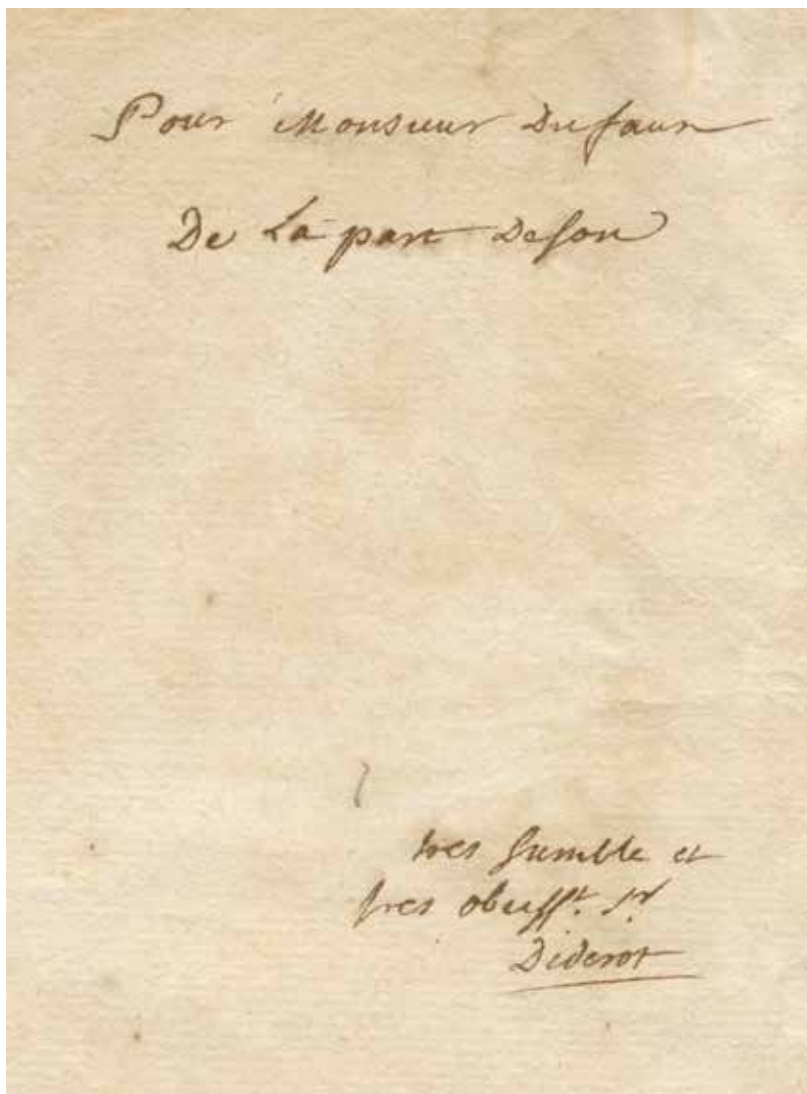 Pour Monsieur Dufaur
De La part Deson
tres humble et
tres obeisst. sr.
Diderot